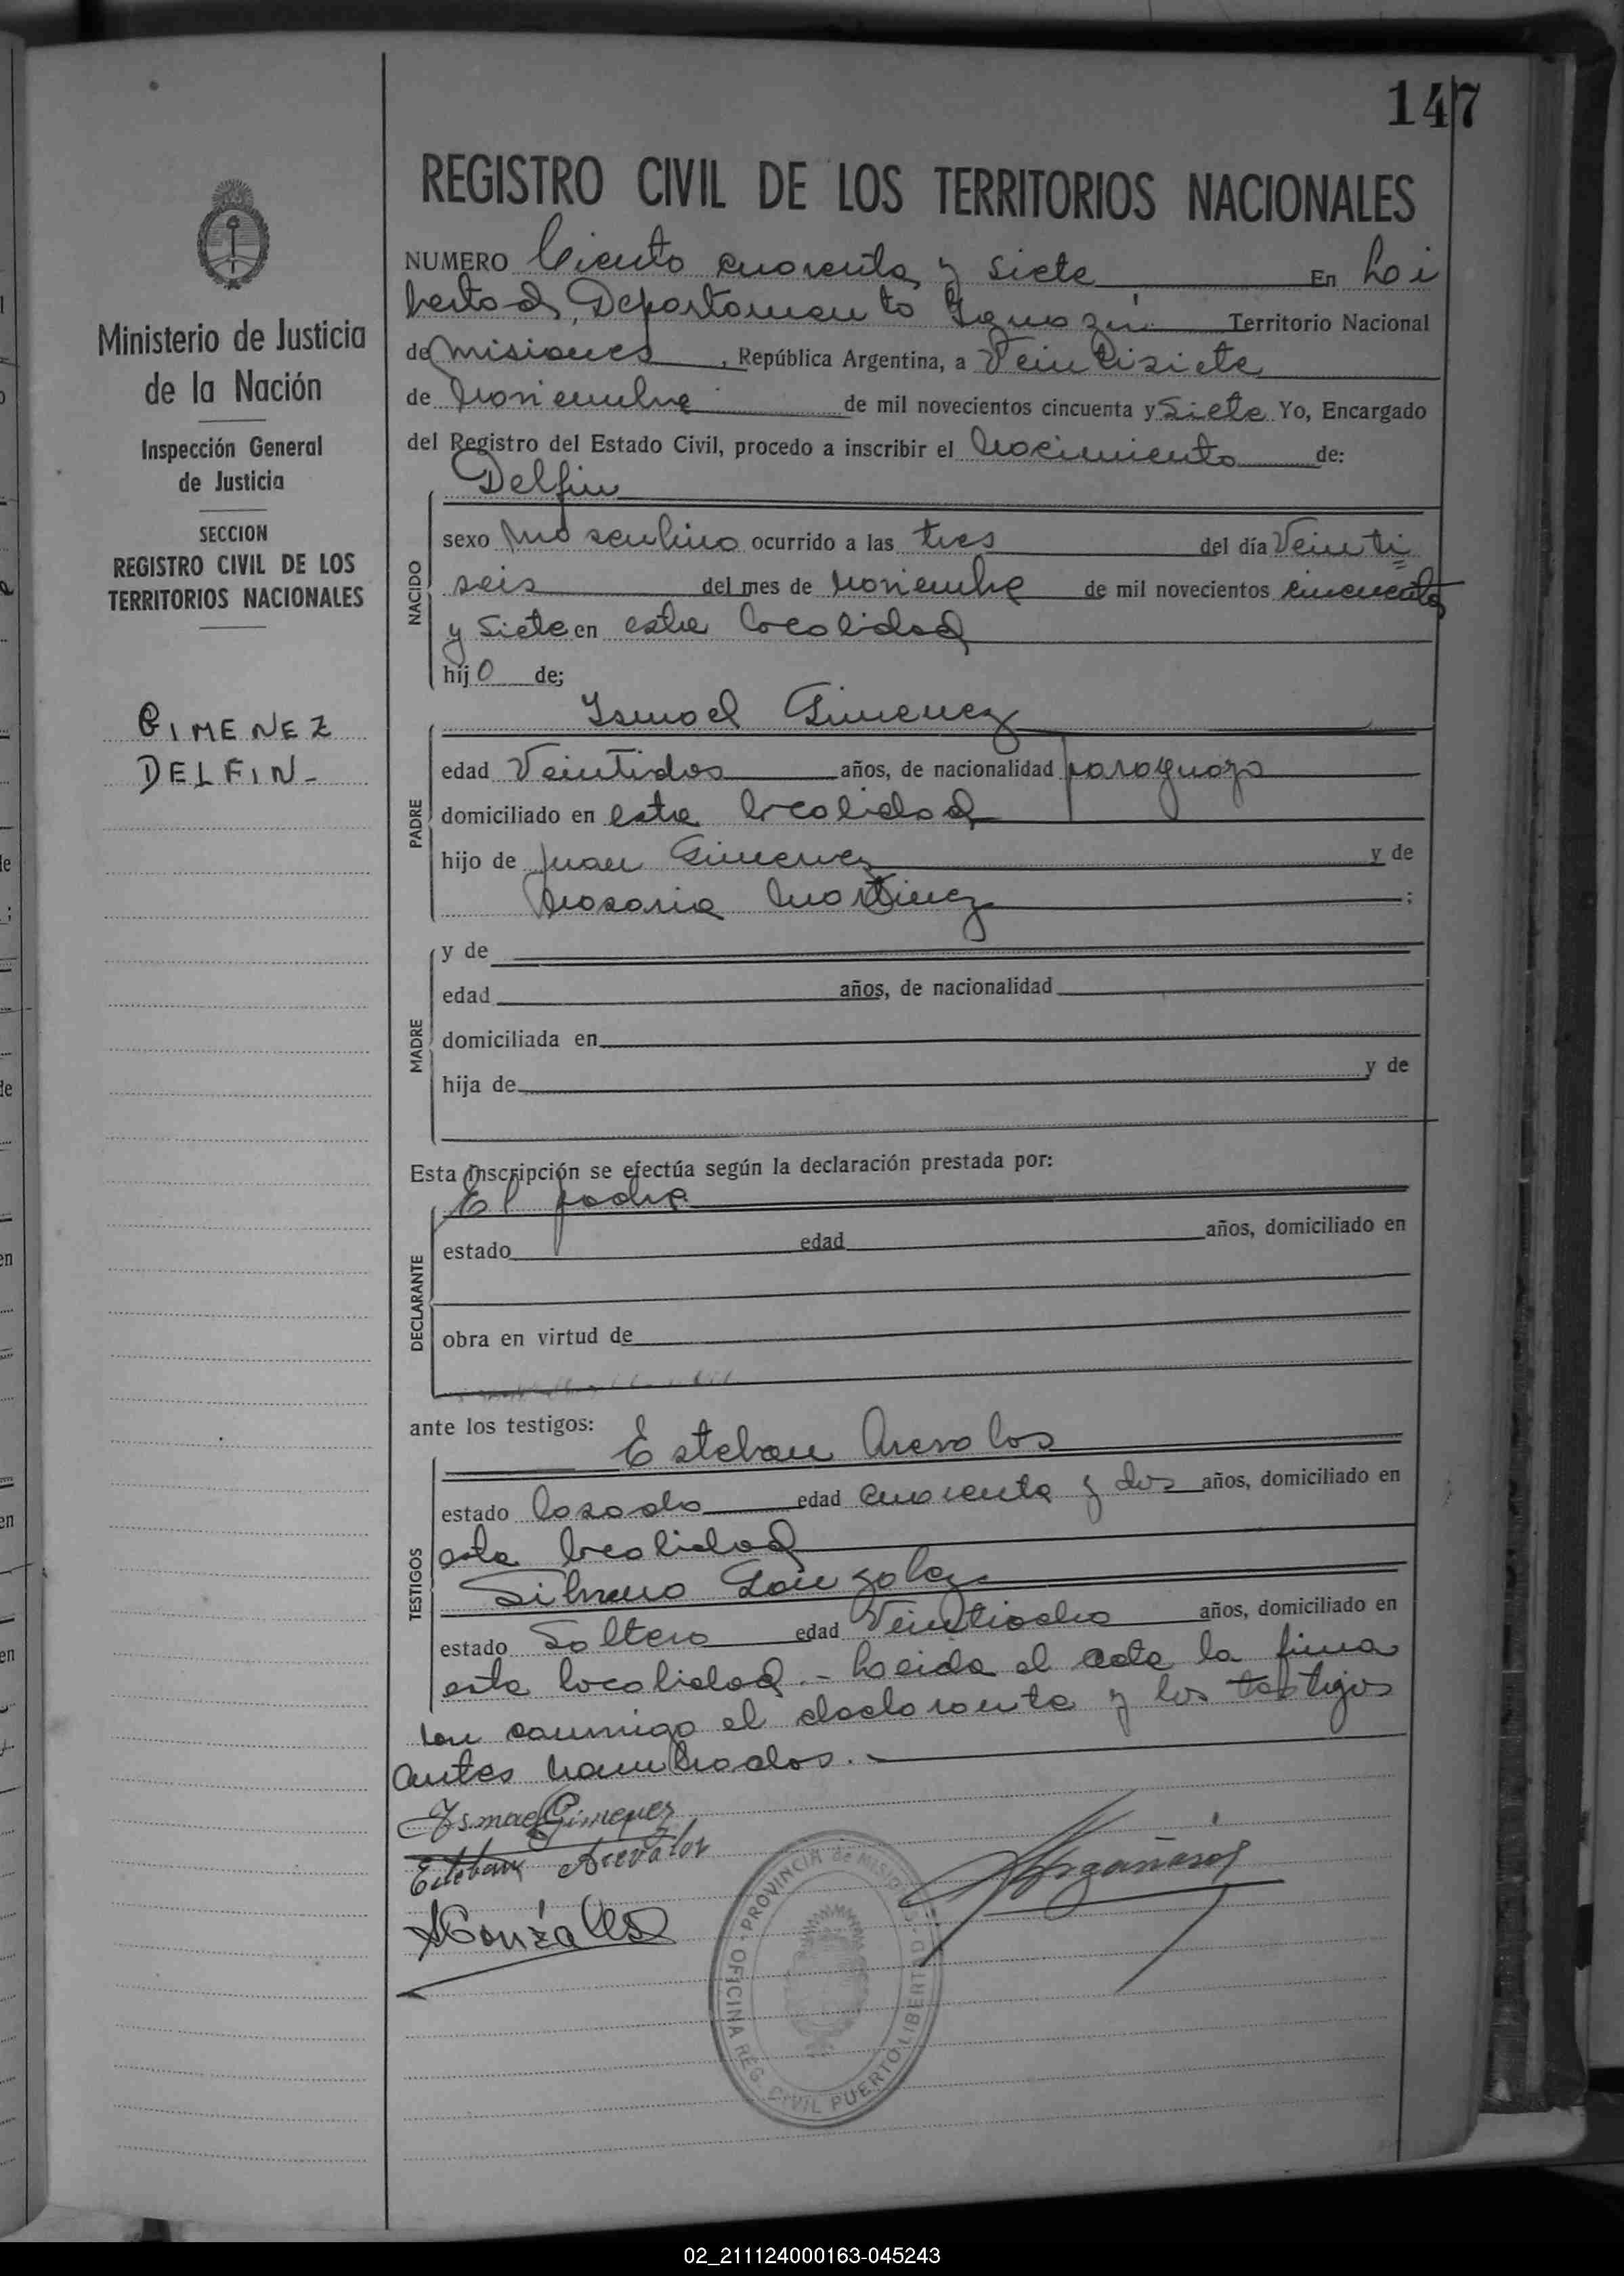 147
REGISTRO CIVIL DE LOS TERRITORIOS NACIONALES
Ministerio de Justicia
de la Nación
Inspección General
de Justicia
SECCION
REGISTRO CIVIL DE LOS
TERRITORIOS NACIONALES
GIMENEZ
DELFIN-
NUMERO Ciento cuarenta y siete En Li
bertad, Departamento Iguazú Territorio Nacional
de Misiones, República Argentina, a Veintisiete
de Noviembre de mil novecientos cincuenta y Siete Yo, Encargado
del Registro del Estado Civil, procedo a inscribir el Nacimiento de:
Delfin
NACIDO
sexo Masculino ocurrido a las tres del día Veinti
seis del mes de Noviembre de mil novecientos cincuenta
y Siete en esta localidad
hijo de;
Ismael Gimenez
PADRE
edad Veintidos años, de nacionalidad paraguayo
domiciliado en esta localidad
hijo de Juan Gimenez y de
Martinez ;
MADRE
y de
edad años, de nacionalidad
domiciliada en
hija de y de
Esta inscripción se efectúa según la declaración prestada por:
El padre
DECLARANTE
estado edad años, domiciliado en
obra en virtud de
ante los testigos:
Esteban Arevalos
TESTIGOS
estado Casado edad cuarenta y dos años, domiciliado en
esta localidad
Silvano Gonzalez
estado Soltero edad Veintiocho años, domiciliado en
esta localidad.- Leida el acta la firma
con conmigo el declarante y los testigos
antes nombrados.-
Ismael Gimenez
Esteban Arevalos
SGonzalez
OFICINA REG. CIVIL PUERTO LIBERTAD - PROVINCIA de MISIONES
02_211124000163-045243